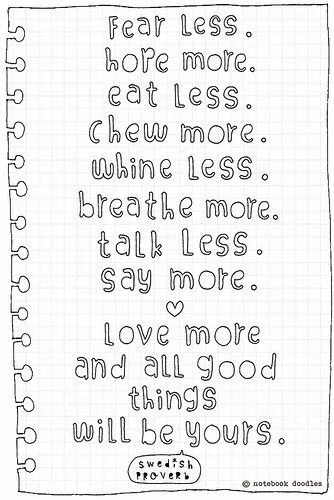 fear less.
hope more.
eat less.
chew more.
whine less.
breathe more.
talk less.
say more.
love more
and all good
things
will be yours.
swedish
PROVERb
© notebook doodles